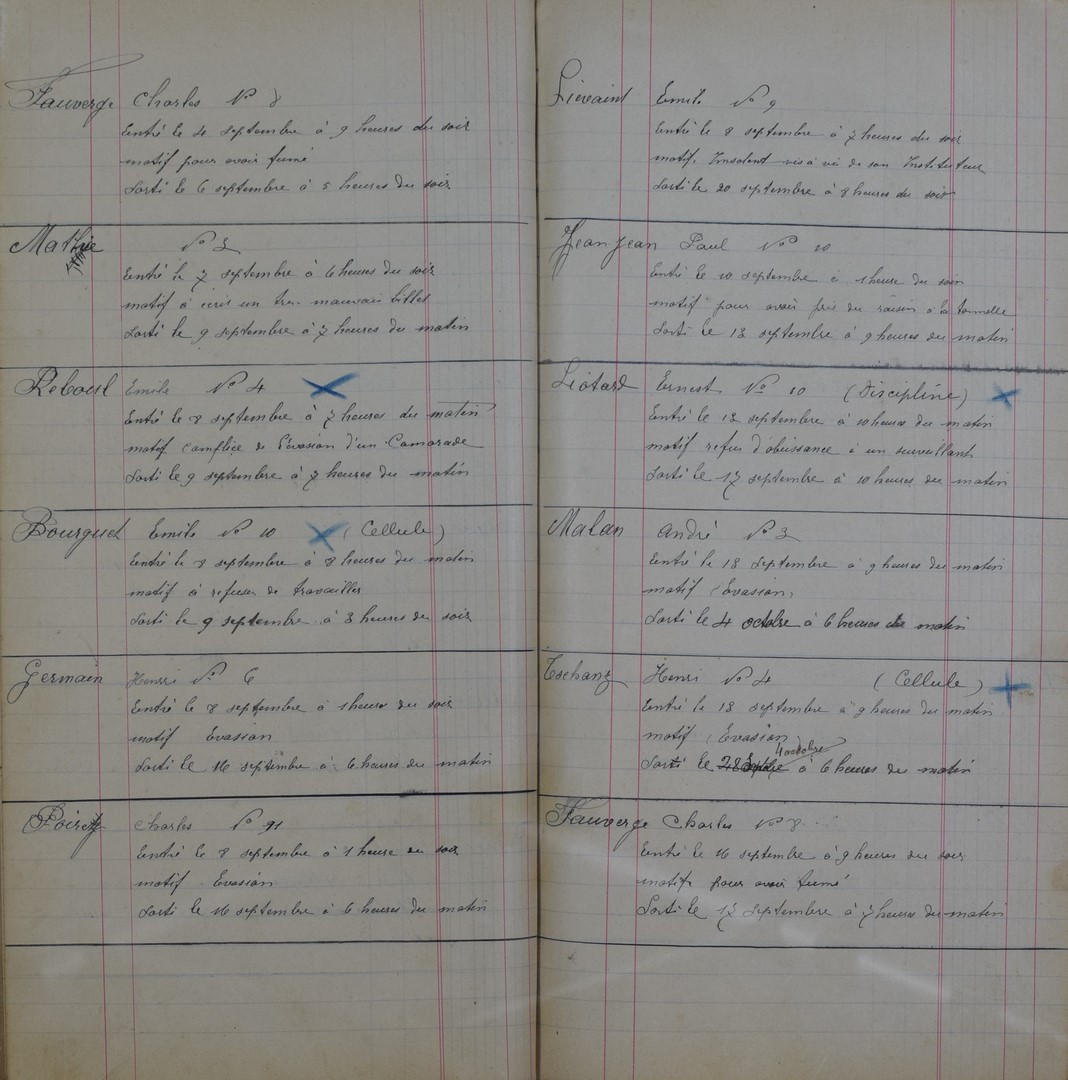 Fauverge Charles No 8
Entré le 4 septembre à 9 heures du soir
motif pour avoir fumé
Sorti le 6 septembre à 5 heures du soir
Mathie No 3
Entré le 7 septembre à 6 heures du soir
motif à écrit un tres mauvais billet
Sorti le 9 septembre à 7 heures du matin
Reboul Emile No 4
Entré le 8 septembre à 7 heures du matin
motif complice de l'évasion d'un Camarade
Sorti le 9 septembre à 7 heures du matin
Bourguet Emile No 10 (Cellule)
Entré le 8 septembre à 8 heures du matin
motif à refuser de travailler
Sorti le 9 septembre à 3 heures du soir
Germain Henri No 6
Entré le 8 septembre à 1 heure du soir
motif Evasion
Sorti le 16 septembre à 6 heures du matin
Charles No 91
Entré le 8 septembre à 1 heure du soir
motif Evasion
Sorti le 16 septembre à 6 heures du matin
Lievaint Emile No 9
Entré le 8 septembre à 7 heures du soir
motif. Insolent vis à vis de son Instituteur
Sorti le 20 septembre à 8 heures du soir
Jeanjean Paul No 10
Entré le 10 septembre à 1 heure du soir
motif pour avoir pris du raisin à la tonnelle
Sorti le 13 septembre à 9 heures du matin
Liotard Ernest No 10 (Discipline)
Entré le 13 septembre à 10 heures du matin
motif refus d'obeissance à un surveillant
Sorti le 17 septembre à 10 heures du matin
Malan André No 3
Entré le 18 septembre à 9 heures du matin
motif (Evasion)
Sorti le 4 octobre à 6 heures du matin
Tschanz Henri No 4 (Cellule)
Entré le 18 septembre à 9 heures du matin
motif (Evasion)
4 octobre
Sorti le à 6 heures du matin
Fauverge Charles No 8
Entré le 16 septembre à 9 heures du soir
motif pour avoir fumé
Sorti le 17 septembre à 7 heures du matin